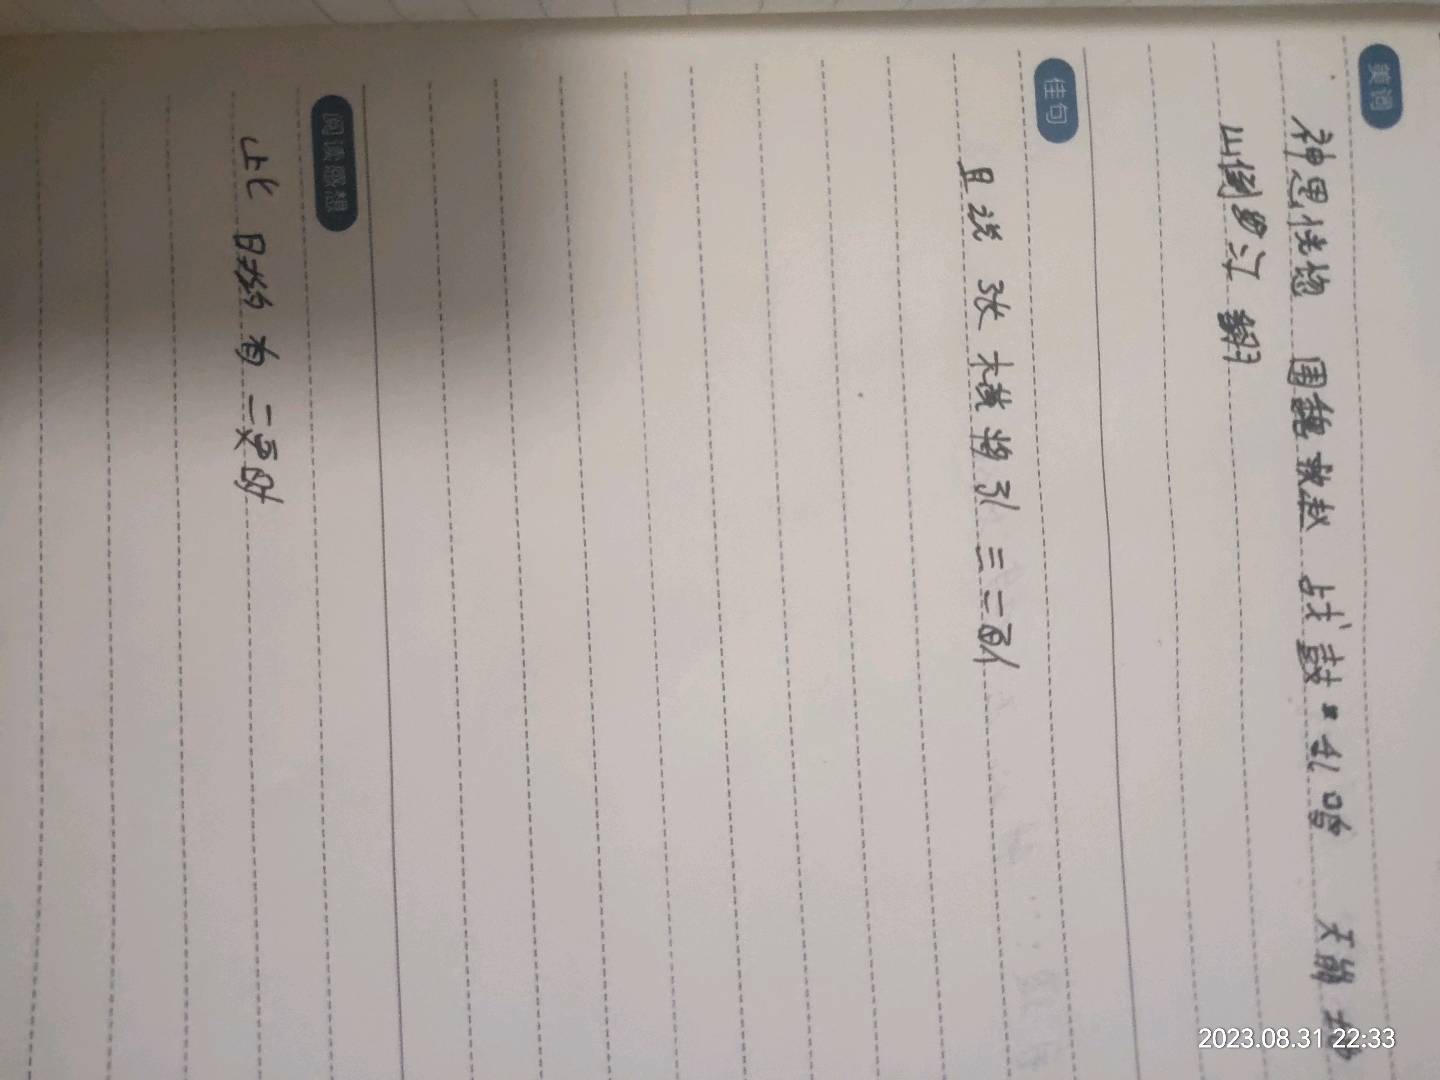 美词
神思恍惚 围魏救赵 战鼓乱鸣 天崩地
山倒 江翻
佳句
且说张大 将引三二百人
阅读感想
此 有二 时
2023.08.31 22:33